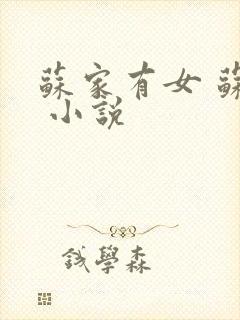 蘇家有女 蘇
小說
錢學森